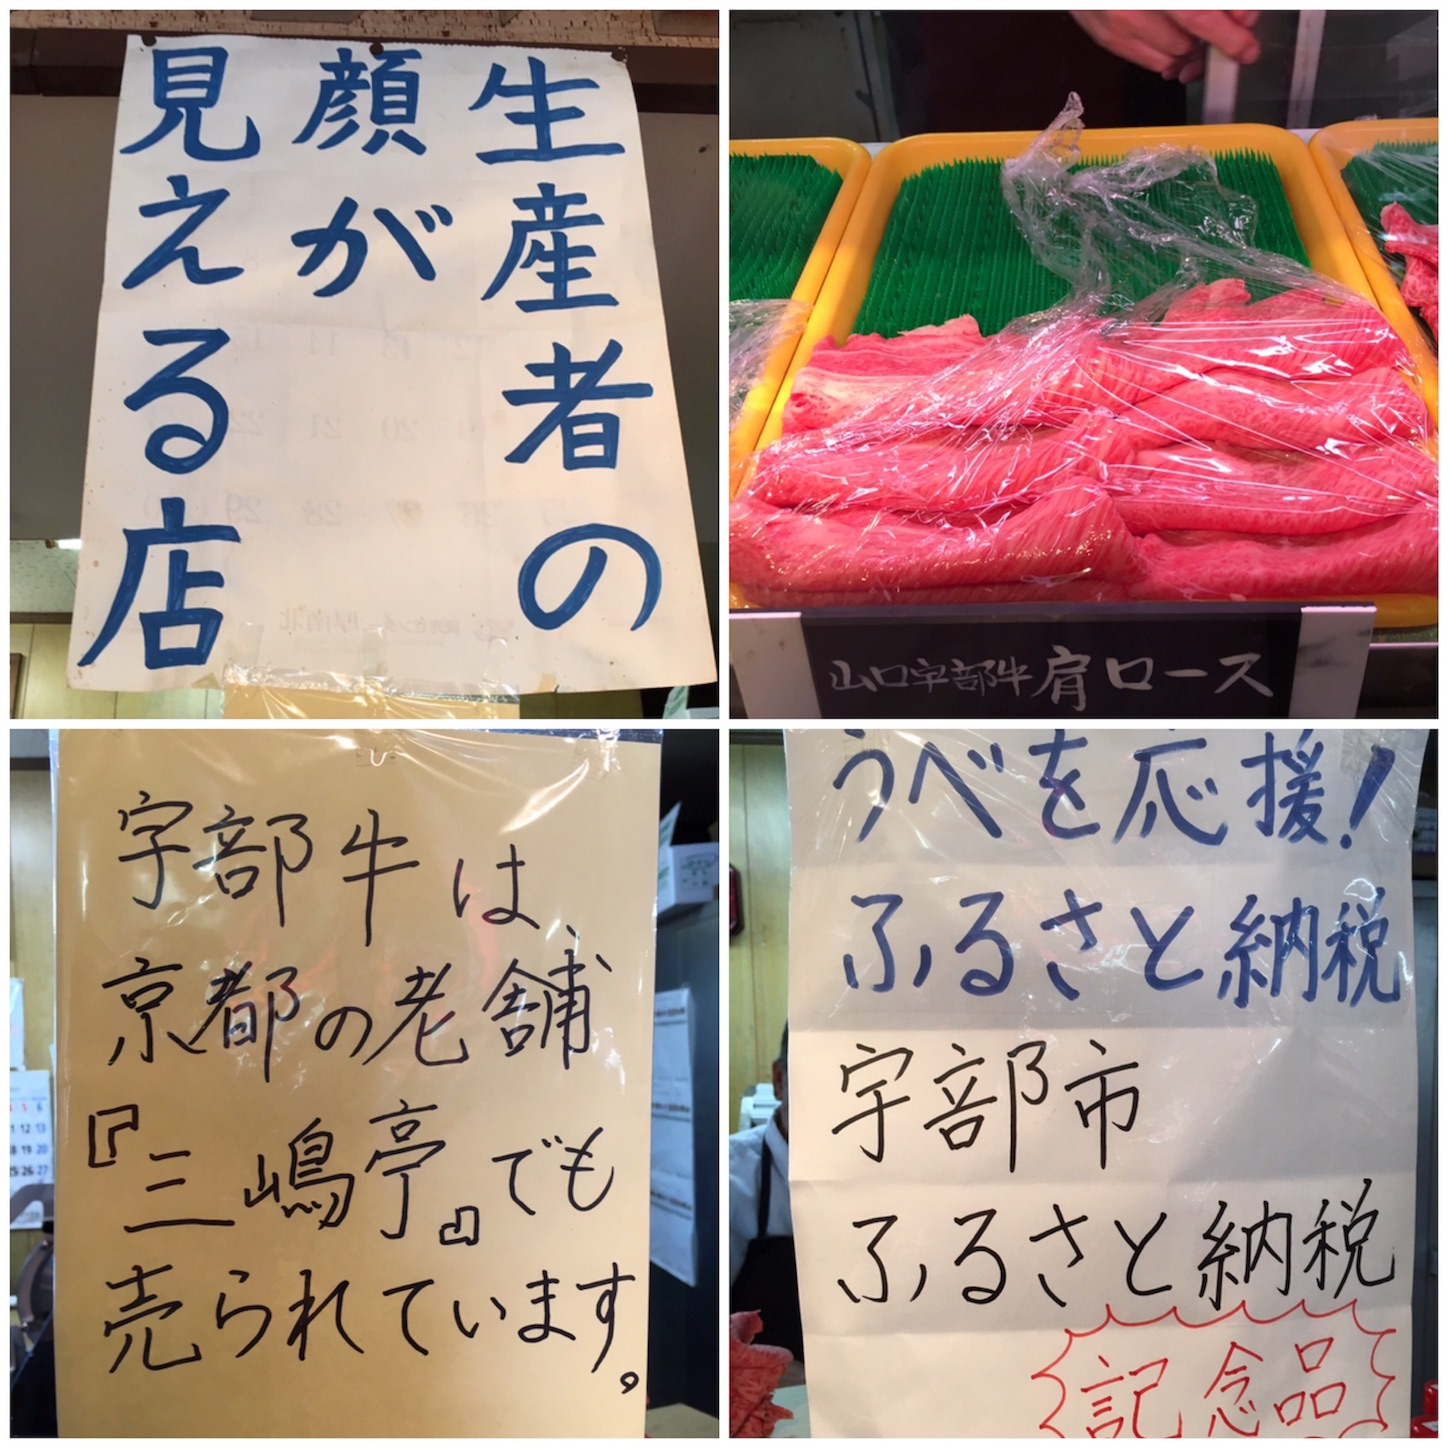 生産者の
顔が
見える店
山口宇部牛肩ロース
宇部牛は、
京都の老舗
『三嶋亭』でも
売られています。
うべを応援!
ふるさと納税
宇部市
ふるさと納税
記念品